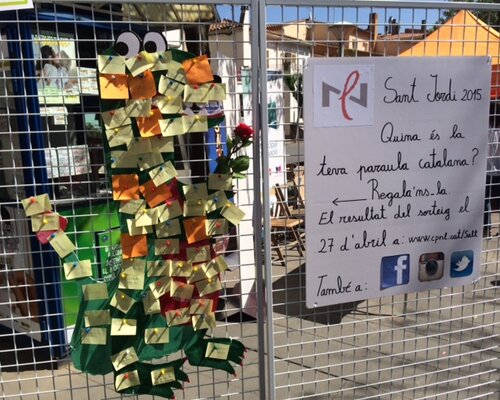 Sant Jordi 2015
Quina és la
teva paraula catalana?
← Regala'ns-la.
El resultat del sorteig el
27 d'abril a: www.cpnl.cat/Salt
També a: